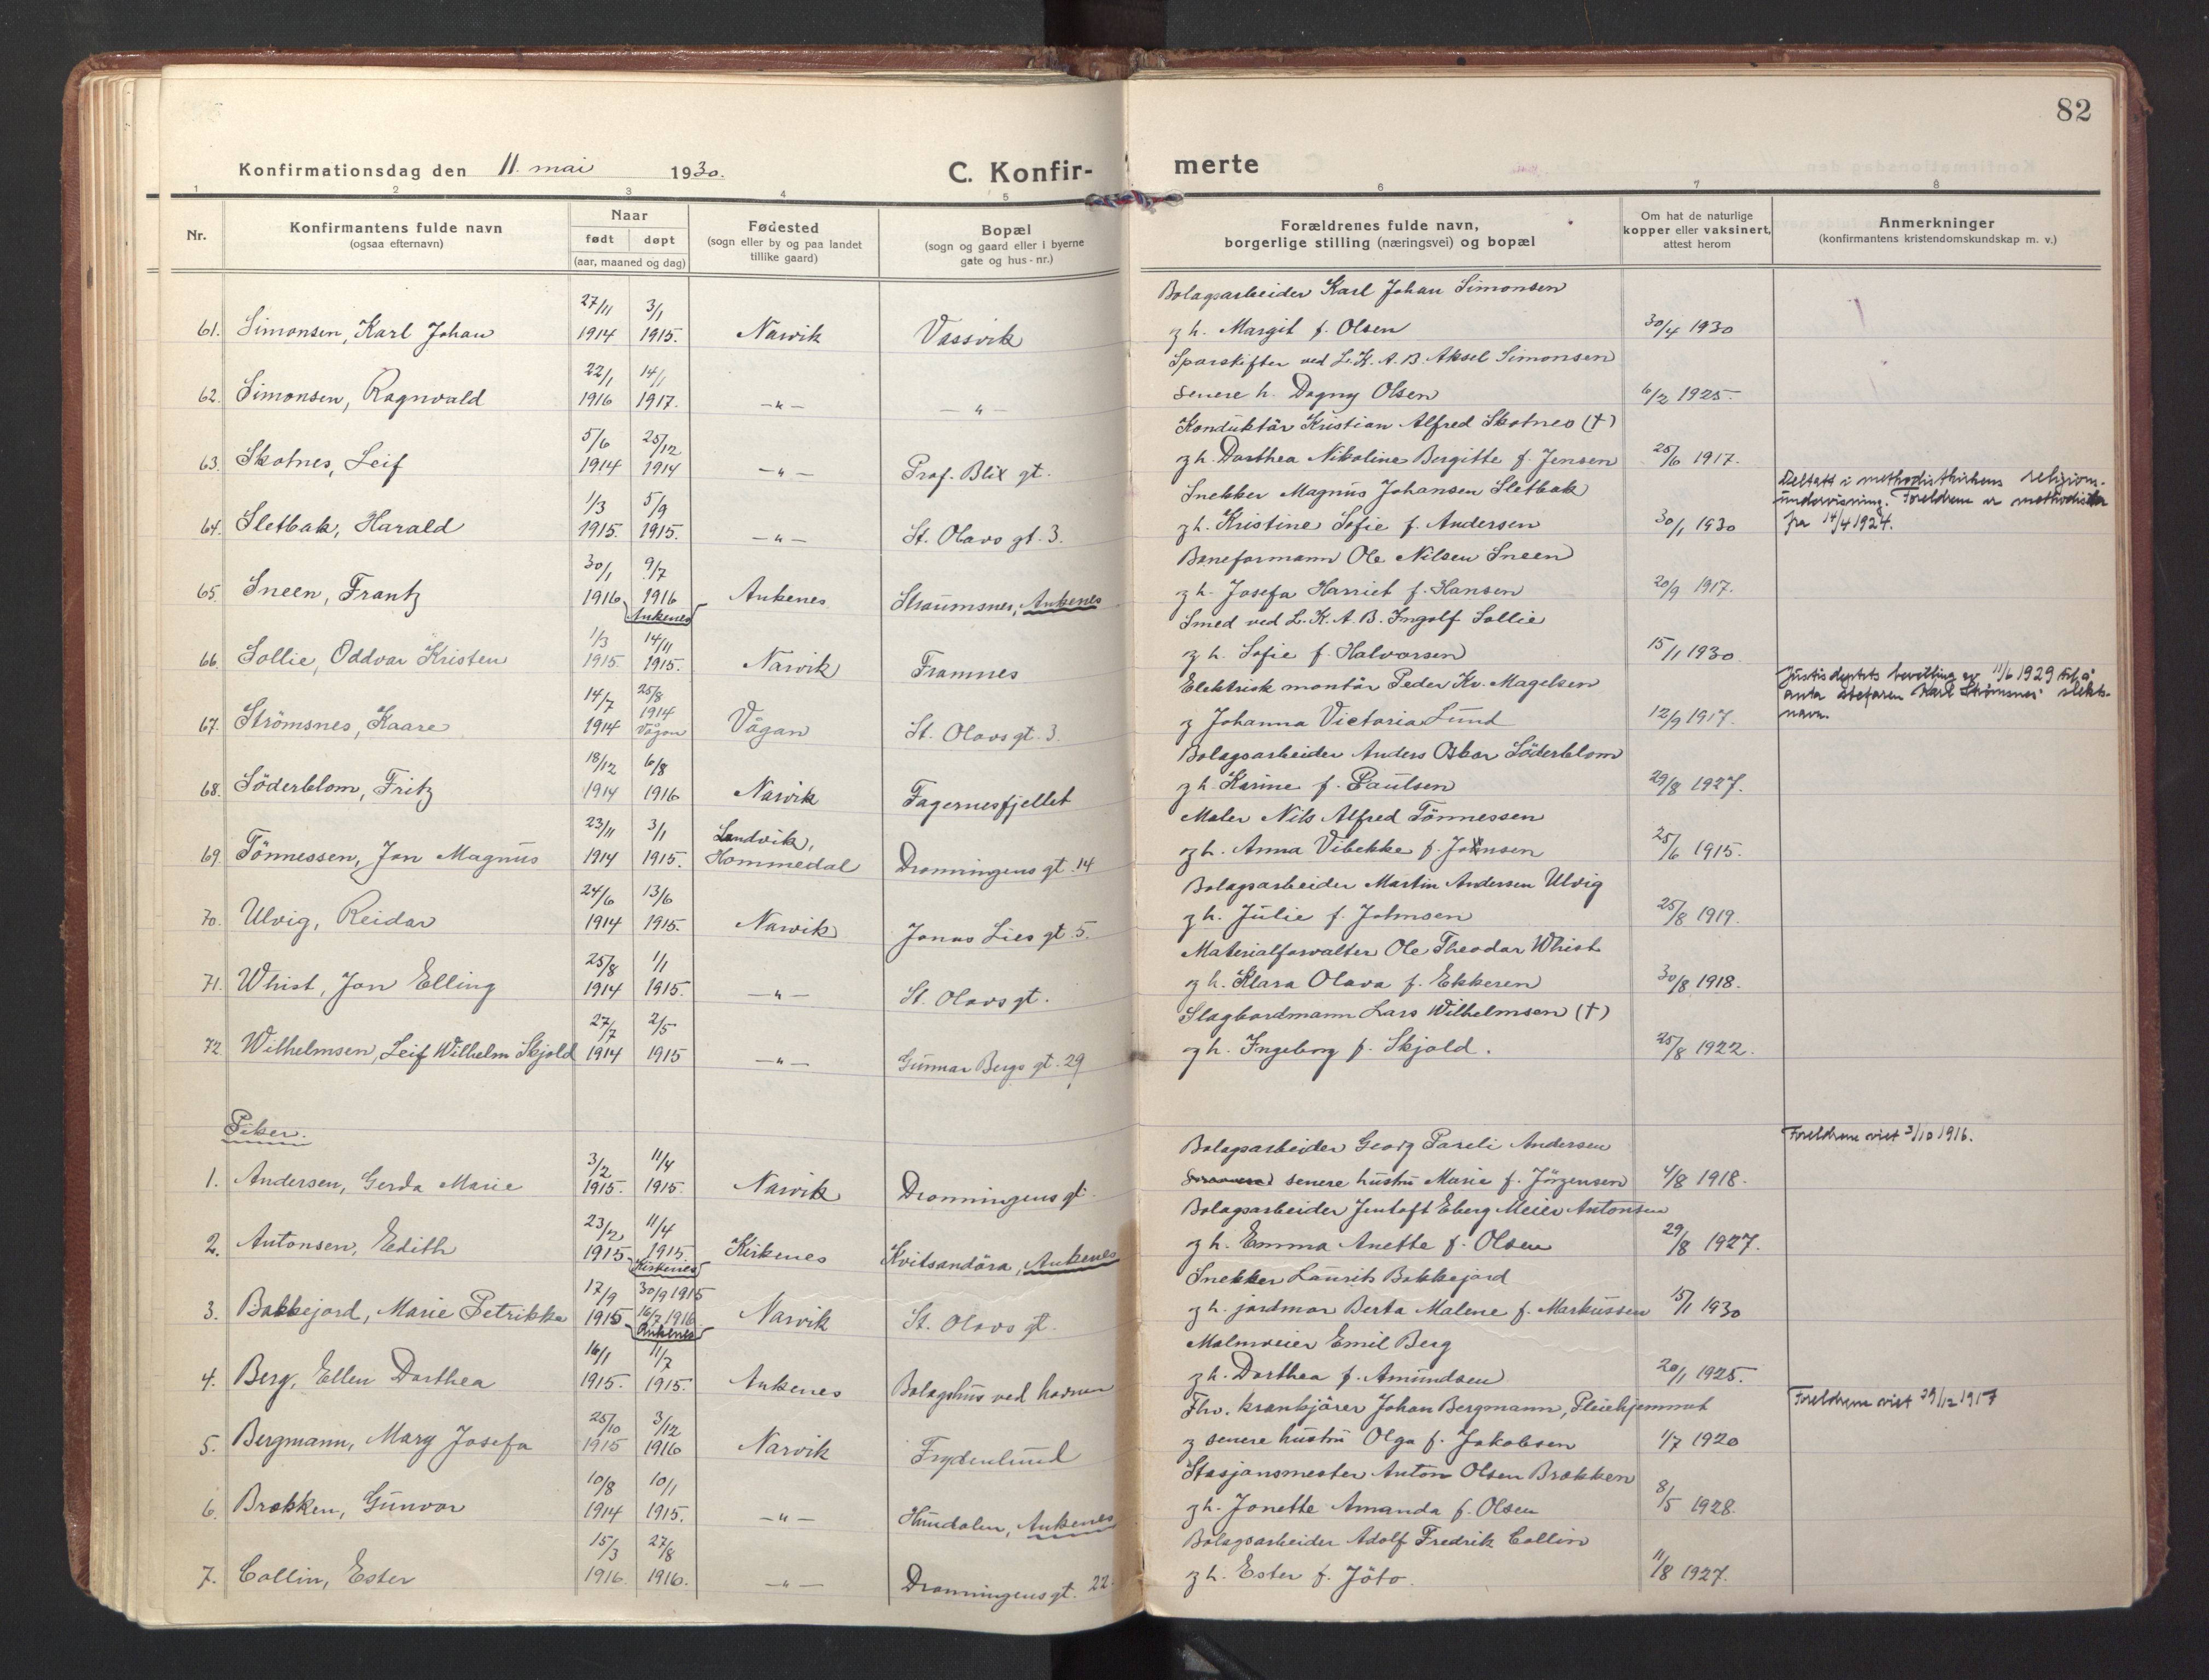 82
Konfirmationsdag den 11. mai 1930.
C. Konfirmerte
1 2 3 4 5 6 7 8
Nr.
Konfirmantens fulde navn
(ogsaa efternavn)
Naar
født døpt
(aar, maaned og dag)
Fødested
(sogn eller by og paa landet
tillike gaard)
Bopæl
(sogn og gaard eller i byerne
gate og hus-nr.)
Forældrenes fulde navn,
borgerlige stilling (næringsvei) og bopæl
Om hat de naturlige
kopper eller vaksinert,
attest herom
Anmerkninger
(konfirmantens kristendomskundskap m. v.)
27/11 3/1 Bolagsarbeider Karl Johan Simonsen
61. Simonsen, Karl Johan 1914 1915. Narvik Vassvik og h. Margit f. Olsen 30/4 1930
22/1 14/1 Sporskifter ved L.K.A.B. Aksel Simonsen
62. Simonsen, Ragnvald 1916 1917. —„— —„— senere h. Dagny Olsen 6/2 1925.
5/6 25/12 Konduktör Kristian Alfred Skotnes (†)
63. Skotnes, Leif 1914 1914 —„— Prof. Blix gt. og h. Dorthea Nikoline Bergitte f. Jensen 25/6 1917.
1/3 5/9 Snekker Magnus Johansen Sletbak Deltatt i methodistkirkens religions-
undervisning. Foreldrene er methodister
64. Sletbak, Harald 1915. 1915. —„— St. Olavs gt. 3. og h. Kristine Sofie f. Andersen 30/1 1930 fra 14/4 1924.
30/1 9/7 Baneformann Ole Nilsen Sneen
65. Sneen, Frantz 1916 1916 Ankenes Ankenes Straumsnes, Ankenes og h. Josefa Harriet f. Hansen 20/9 1917.
1/3 14/11 Smed ved L.K.A.B. Ingolf Sollie
66. Sollie, Oddvar Kristen 1915. 1915. Narvik Framnes og h. Sofie f. Halvorsen 15/1 1930
14/7 25/8 Elektrisk montör Peder Kr. Magelsen Justisdeptets bevilling av 11/6 1929 til å
anta stefaren Karl Strömsnes' slekts-
67. Strömsnes, Kaare 1914 1914 Vågan Vågan St. Olavs gt. 3. og Johanna Victoria Lund 12/9 1917. navn.
18/12 6/8 Bolagsarbeider Anders Oskar Söderblom
68. Söderblom, Fritz 1914 1916 Narvik Fagernesfjellet og h. Karine f. Paulsen 29/8 1927.
23/11 3/1 Landvik, Maler Nils Alfred Tönnessen
69. Tönnessen, Jon Magnus 1914 1915. Hommedal Dronningens gt. 14 og h. Anna Vibekke f. Johnsen 25/6 1915.
24/6 13/6 Bolagsarbeider Martin Andersen Ulvig
70. Ulvig, Reidar 1914 1915. Narvik Jonas Lies gt. 5. og h. Julie f. Johnsen 25/8 1919.
25/8 1/1 Materialforvalter Ole Theodor Whist
71. Whist, Jon Elling 1914 1915. —„— St. Olavs gt. og h. Klara Olava f. Ekkeren 30/8 1918.
27/7 2/5 Slagbordmann Lars Wilhelmsen (†)
72. Wilhelmsen, Leif Wilhelm Skjold 1914 1915 —„— Gunnar Bergs gt. 29 og h. Ingeborg f. Skjold. 25/8 1922.
Piker.
3/2 11/4 Bolagsarbeider Georg Pareli Andersen Foreldrene viet 3/10 1916.
1. Andersen, Gerda Marie 1915. 1915. Narvik Dronningens gt. senere hustru Marie f. Jörgensen 4/8 1918.
23/2 11/4 Bolagsarbeider Jentoft Eberg Meier Antonsen
2. Antonsen, Edith 1915 1915. Kirkenes Kirkenes Kvitsandöra, Ankenes og h. Emma Anette f. Olsen 29/8 1927.
17/9 30/9 1915 Snekker Laurits Bakkejord
3. Bakkejord, Marie Petrikke 1915 16/7 1916 Ankenes Narvik St. Olavs gt. og h. jordmor Berta Malene f. Markussen 15/1 1930
16/1 11/7 Malmveier Emil Berg
4. Berg, Ellen Dorthea 1915. 1915. Ankenes Bolagshus ved havnen og h. Dorthea f. Amundsen 20/1 1925.
25/10 3/12 Fhv. krankjörer Johan Bergmann, Pleiehjemmet Foreldrene viet 29/12 1917
5. Bergmann, Mary Josefa 1915 1916 Narvik Frydenlund og senere hustru Olga f. Jakobsen 1/7 1920
10/8 10/1 Stasjonsmester Anton Olsen Brækken
6. Brækken, Gunvor 1914 1915. —„— Hundalen, Ankenes og h. Jonette Amanda f. Olsen 8/5 1928.
15/3 27/8 Bolagsarbeider Adolf Fredrik Collin
7. Collin, Ester 1916. 1916. —„— Dronningens gt. 22. og h. Ester f. Jöto. 11/8 1927.